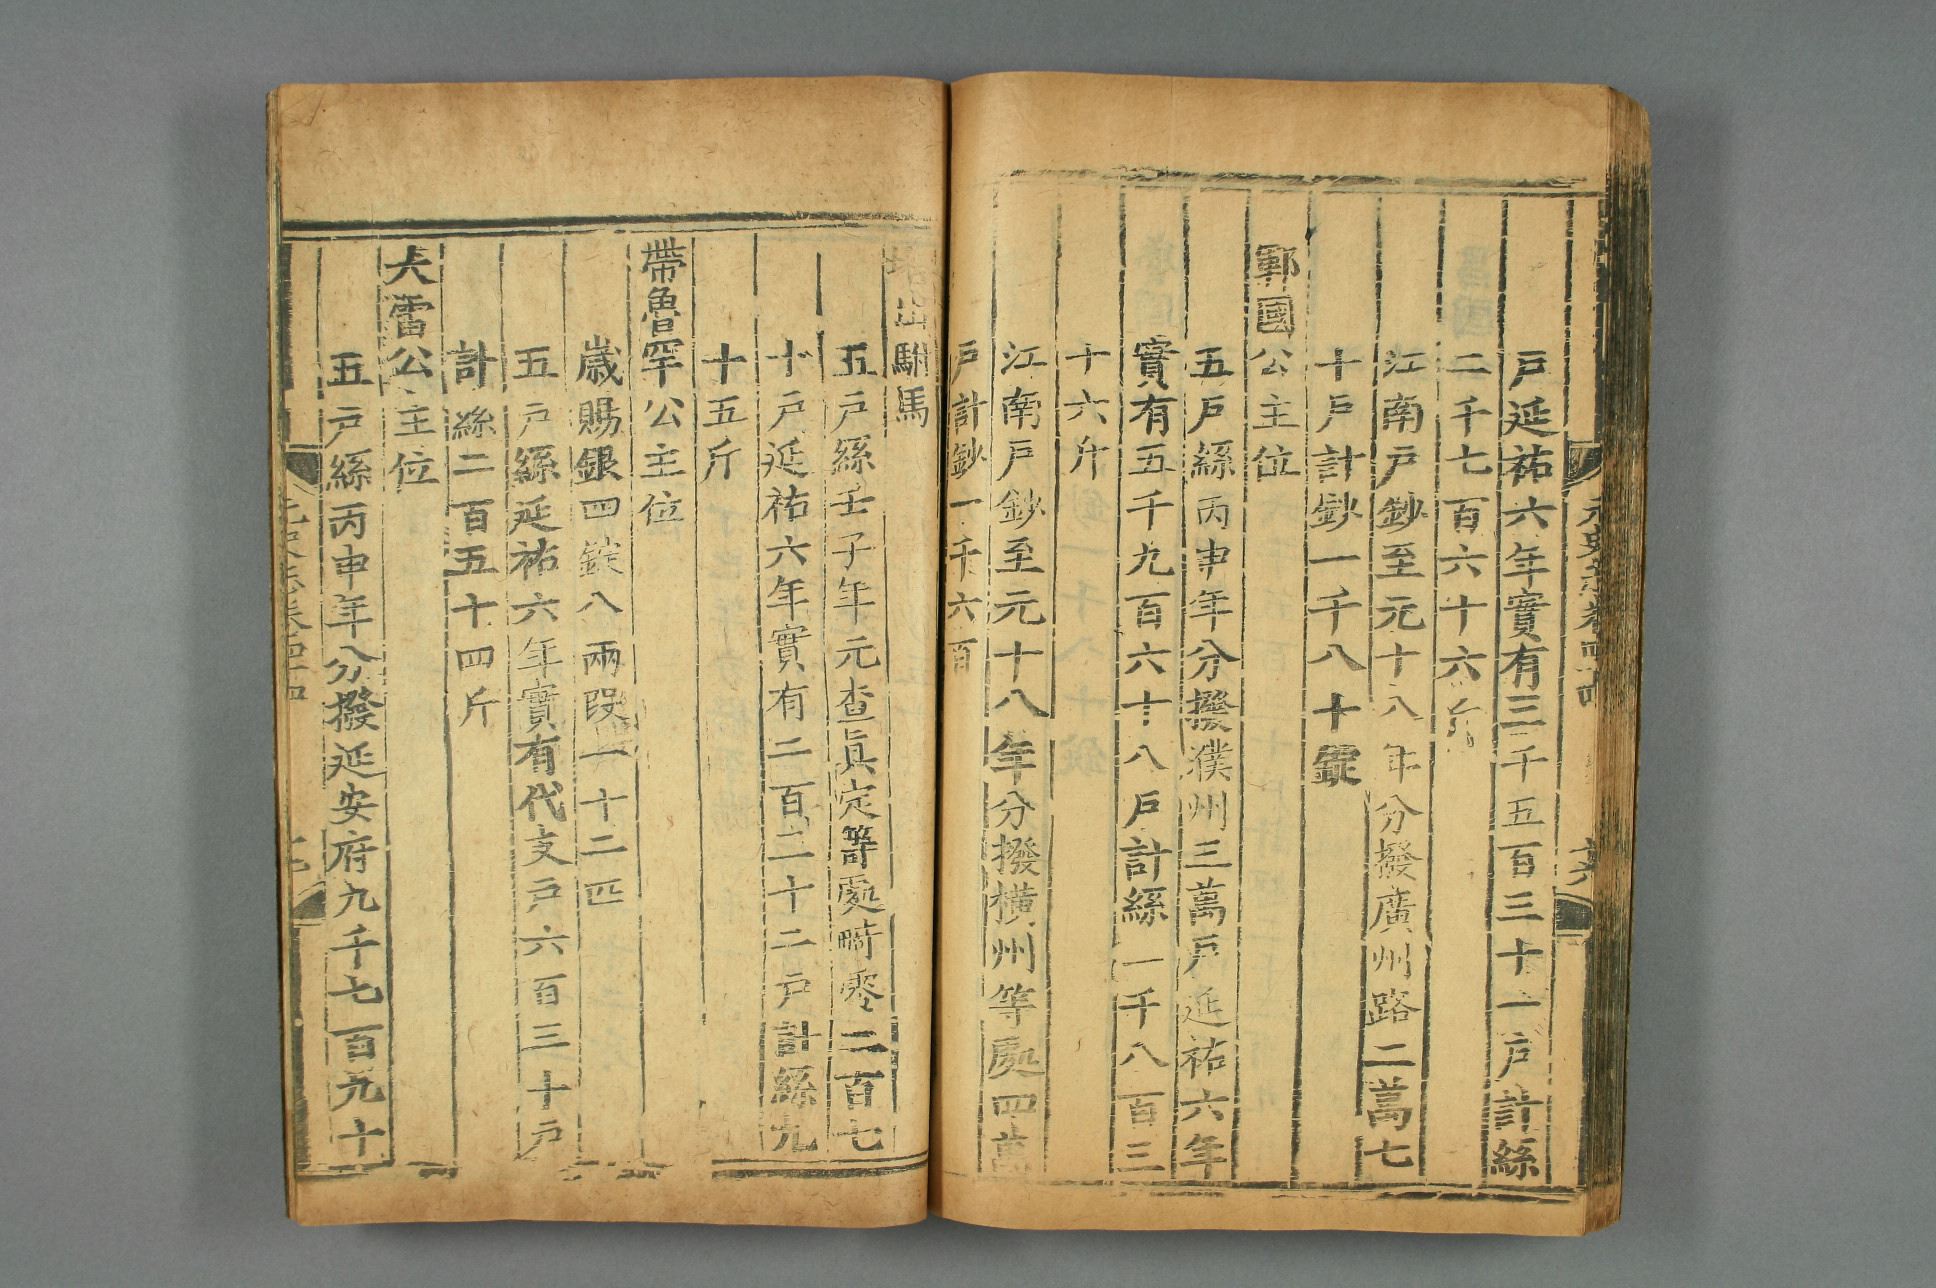 元史志卷四十四
戸延祐六年實有三千五百三十一戸計絲
二千七百六十六斤
江南戸鈔至元十八年分撥廣州路二萬七
十戸計鈔一千八十錠
鄆國公主位
五戸絲丙申年分撥濮州三萬戸延祐六年
實有五千九百六十八戸計絲一千八百三
十六斤
江南戸鈔至元十八年分撥橫州等處四萬
戸計鈔一千六百
塔出駙馬
五戸絲壬子年元查真定等處畸零二百七
十戸延祐六年實有二百二十二戸計絲九
十五斤
帶魯罕公主位
歳賜銀四錠八兩段一十二匹
五戸絲延祐六年實有代支戸六百三十戸
計絲二百五十四斤
大雷公主位
五戸絲丙申年分撥延安府九千七百九十
元史志卷四十四